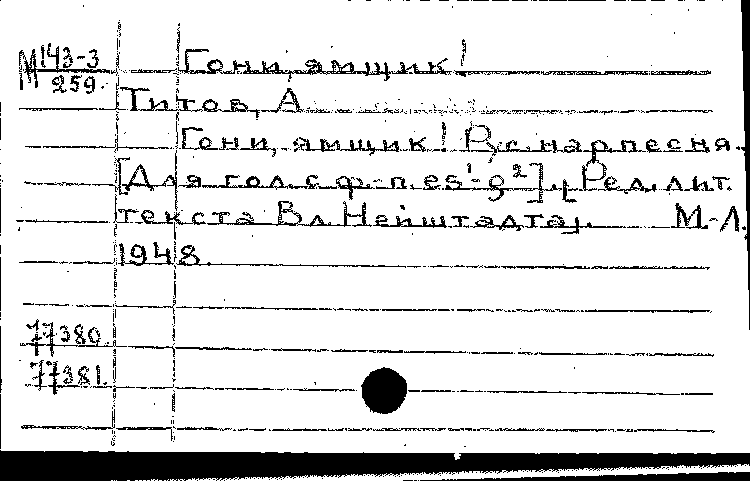 М 143-3 Гони, ямщик!
259.
Титов, А.
Гони, ямщик! Рус. нар. песня.
[Для гол. с ф.-п. es¹-g²]. [Ред. лит.
текста Вл. Нейштадта]. М.-Л.,
1948.
77380.
77381.